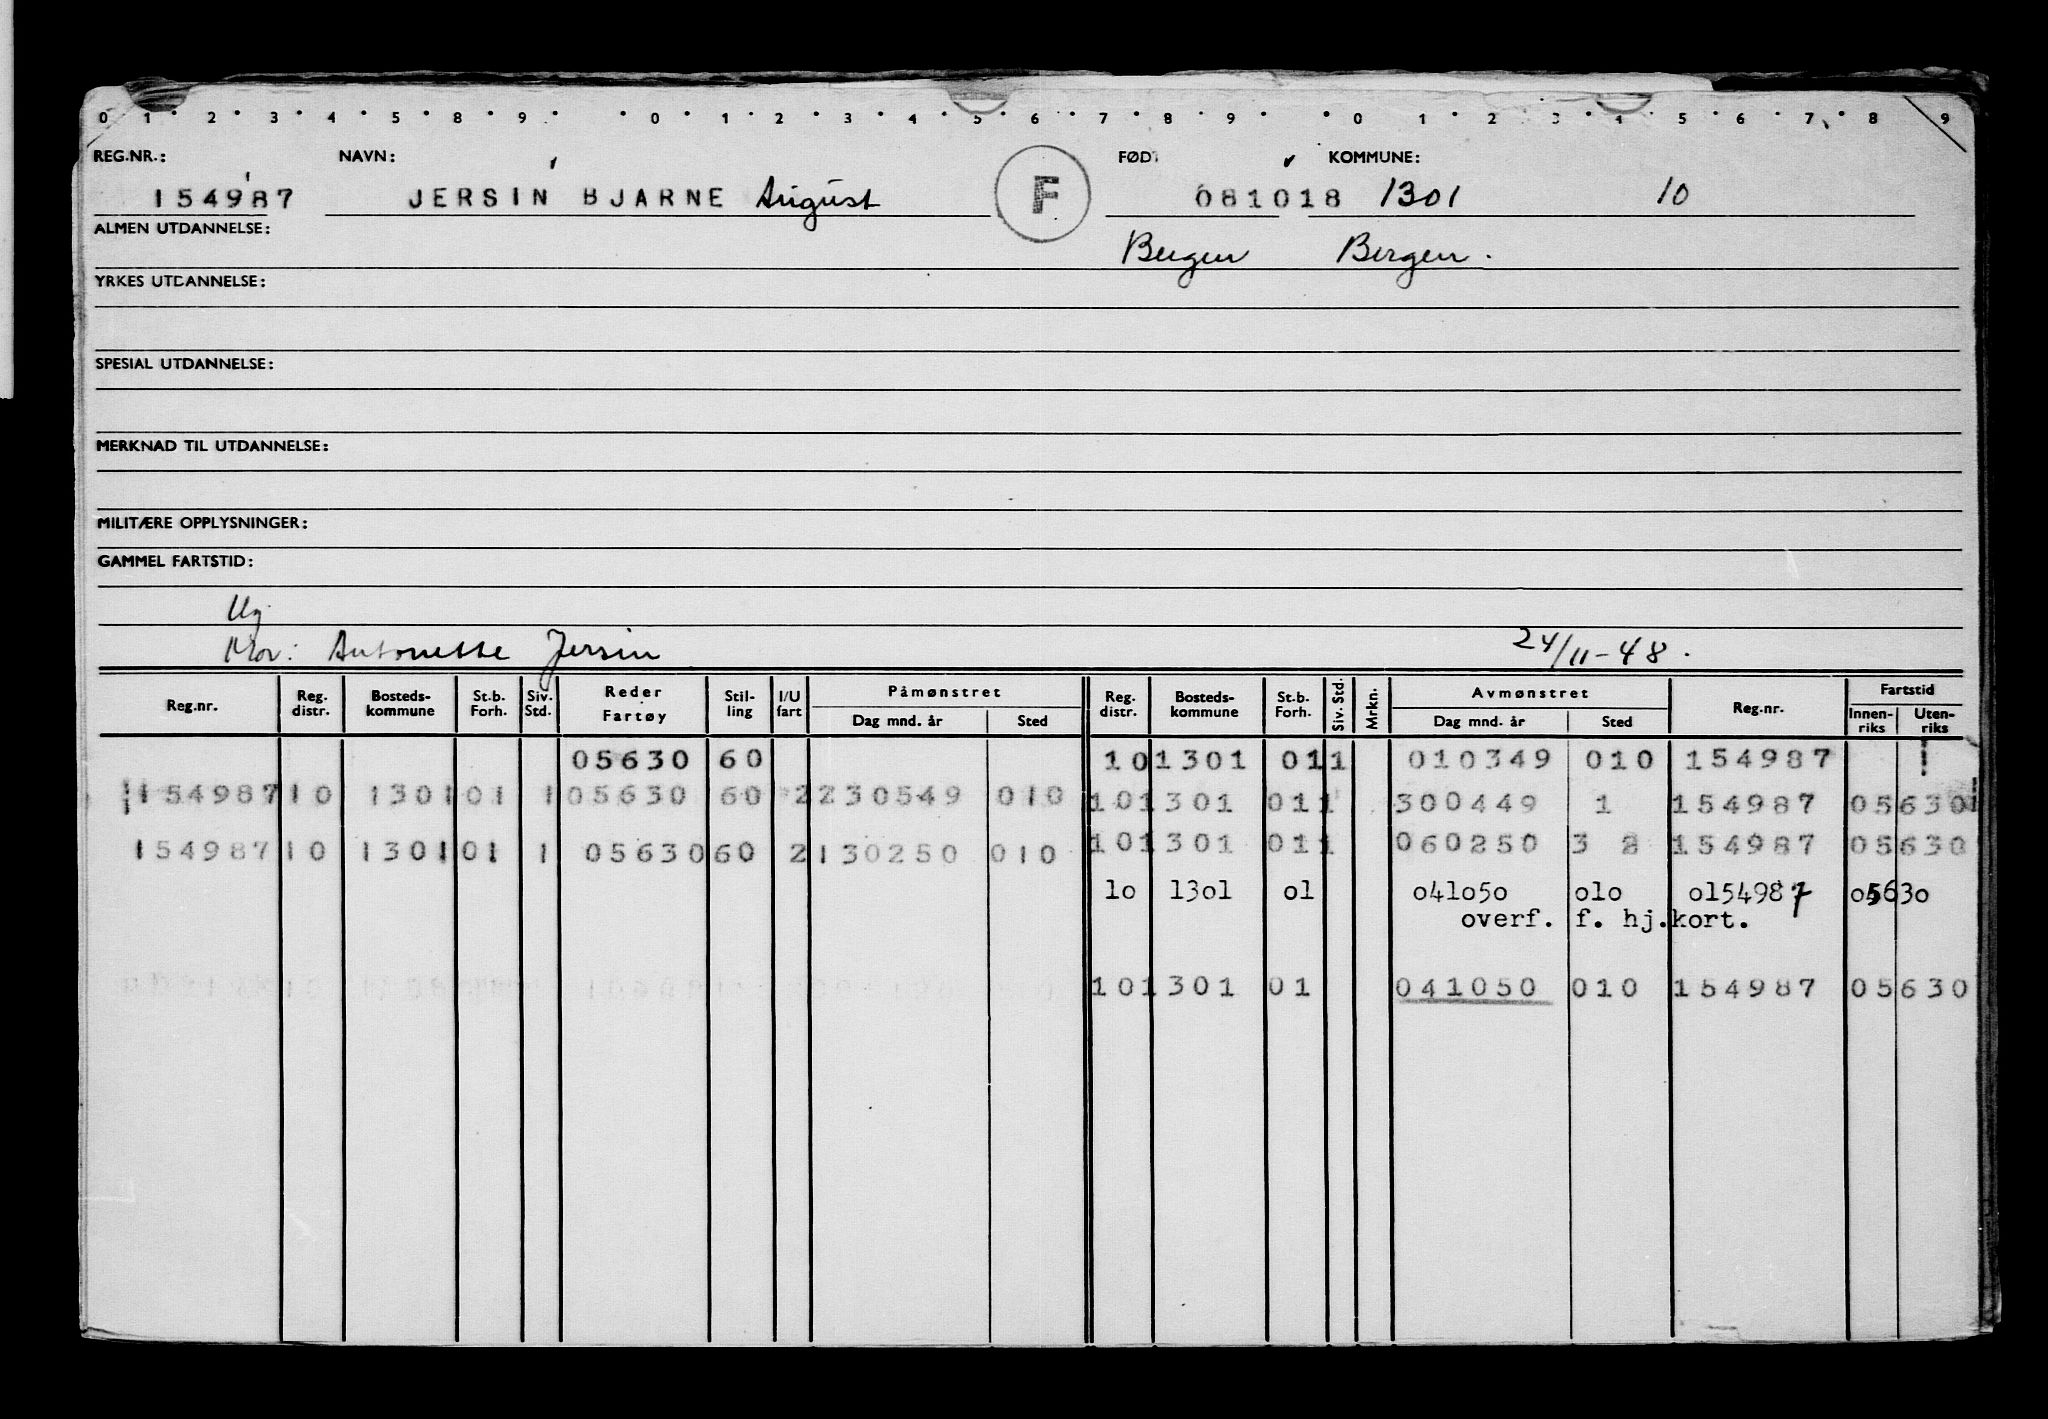 0 1 2 3 4 5 8 9 0 1 2 3 4 5 6 7 8 9 0 1 2 3 4 5 6 7 8 9
REG.NR.: NAVN: FØDT KOMMUNE:
154987 JERSIN BJARNE August F 081018 1301 10
ALMEN UTDANNELSE: Bergen Bergen.
YRKES UTDANNELSE:
SPESIAL UTDANNELSE:
MERKNAD TIL UTDANNELSE:
MILITÆRE OPPLYSNINGER:
GAMMEL FARTSTID:
Ug
Mor: Antonette Jersin 24/11-48.
Reg.nr. Reg. distr. Bosteds-kommune St.b. Forh. Siv. Std. Reder Fartøy Stil-ling I/U fart Påmønstret Dag mnd. år Sted Reg. distr. Bosteds-kommune St.b. Forh. Siv. Std. Mrkn. Avmønstret Dag mnd. år Sted Reg.nr. Fartstid Innen-riks Uten-riks
05630 60 10 1301 01 1 010349 010 154987
154987 10 1301 01 1 05630 60 2 230549 010 10 1301 01 1 300449 1 154987 05630
154987 10 1301 01 1 05630 60 2 130250 010 10 1301 01 1 060250 3 2 154987 05630
lo 13ol ol o41o5o olo ol54987 o563o
overf. f. hj.kort.
10 1301 01 041050 010 154987 05630